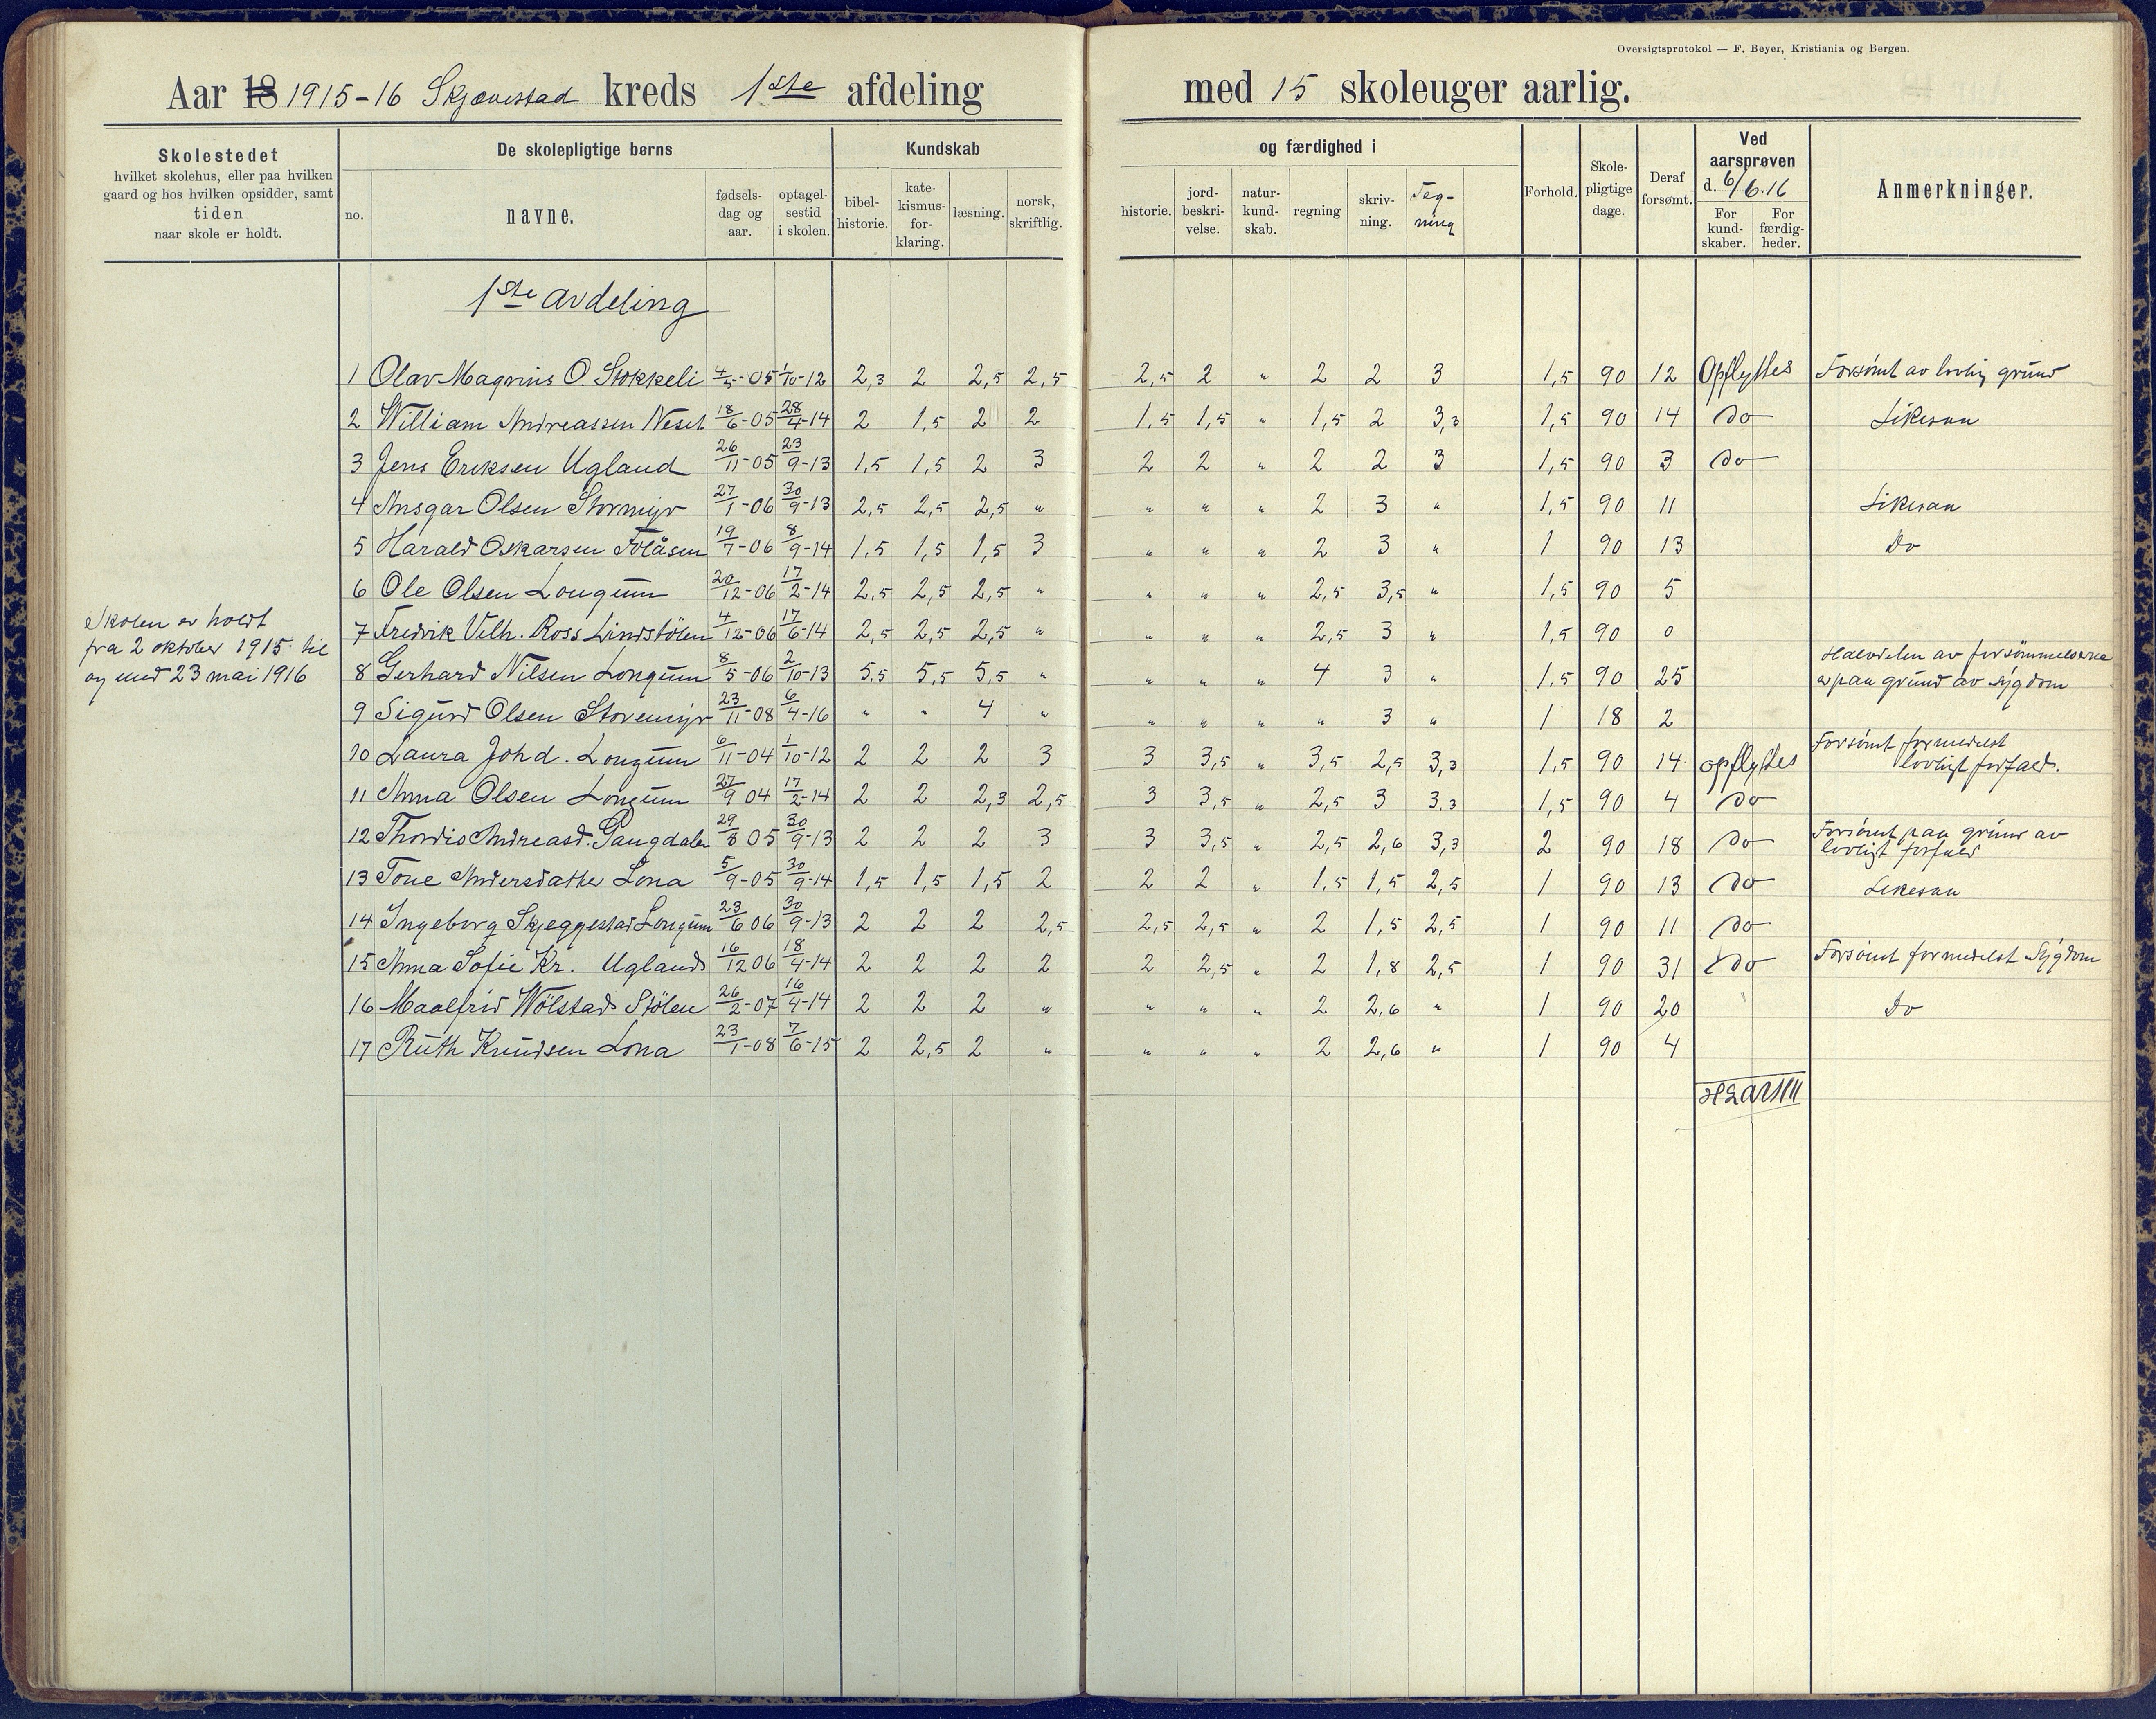 Oversigtsprotokol — F. Beyer, Kristiania og Bergen.
Aar 18 1915-16 Skjævestad kreds 1ste afdeling med 15 skoleuger aarlig.
Skolestedet
hvilket skolehus, eller paa hvilken
gaard og hos hvilken opsidder, samt
tiden
naar skole er holdt.
De skolepligtige børns
no.
navne.
fødsels-
dag og
aar.
optagel-
sestid
i skolen.
Kundskab
bibel-
historie.
kate-
kismus-
for-
klaring.
læsning.
norsk,
skriftlig.
og færdighed i
historie.
jord-
beskri-
velse.
natur-
kund-
skab.
regning
skriv-
ning.
Teg-
ning
Forhold.
Skole-
pligtige
dage.
Deraf
forsømt.
Ved
aarsprøven
d. 6/6.16
For
kund-
skaber.
For
færdig-
heder.
Anmerkninger.
1ste avdeling
Skolen er holdt
fra 2 oktober 1915 til
og med 23 mai 1916
1 Olav Magnus O. Stokkeli 4/5-05 1/10-12 2,3 2 2,5 2,5 2,5 2 " 2 2 3 1,5 90 12 Opflyttes Forsömt av lovlig grund
2 William Andreassen Neset 18/6-05 28/4-14 2 1,5 2 2 1,5 1,5 " 1,5 2 3,3 1,5 90 14 do Likesaa
3 Jens Eriksen Ugland 26/11-05 23/9-13 1,5 1,5 2 3 2 2 " 2 2 3 1,5 90 3 do
4 Ansgar Olsen Stormyr 27/1-06 30/9-13 2,5 2,5 2,5 " " " " 2 3 " 1,5 90 11 Likesaa
5 Harald Oskarsen Flåsen 19/7-06 8/9-14 1,5 1,5 1,5 3 " " " 2 3 " 1 90 13 Do
6 Ole Olsen Longum 20/12-06 17/2-14 2,5 2,5 2,5 " " " " 2,5 3,5 " 1,5 90 5
7 Fredrik Vilh. Ross Lindstölen 4/12-06 17/6-14 2,5 2,5 2,5 " " " " 2,5 3 " 1,5 90 0
8 Gerhard Nilsen Longum 8/5-06 2/10-13 5,5 5,5 5,5 " " " " 4 3 " 1,5 90 25 Halvdelen av forsömmelserne
er paa grund av sygdom
9 Sigurd Olsen Storemyr 23/11-08 6/4-16 " " 4 " " " " " 3 " 1 18 2
10 Laura Johd. Longum 6/11-04 1/10-12 2 2 2 3 3 3,5 " 3,5 2,5 3,3 1,5 90 14 opflyttes Forsömt formedelst
lovligt forfald.
11 Anna Olsen Longum 27/9 04 17/2-14 2 2 2,3 2,5 3 3,5 " 2,5 3 3,3 1,5 90 4 do
12 Thordis Andreasd. Gangdalen 29/8 05 30/9-13 2 2 2 3 3 3,5 " 2,5 2,6 3,3 2 90 18 do Forsömt paa grund av
lovligt forfald
13 Tone Andersdatter Lona 5/9-05 30/9-14 1,5 1,5 1,5 2 2 2 " 1,5 1,5 2,5 1 90 13 do Likesaa
14 Ingeborg Skjeggestad Longum 23/6 06 30/9-13 2 2 2 2,5 2,5 2,5 " 2 1,5 2,5 1 90 11 do
15 Anna Sofie Kr. Ugland 16/12 06 18/4-14 2 2 2 2 2 2,5 " 2 1,8 2,5 1 90 31 do Forsömt formedelst Sygdom
16 Maalfrid Wölstad Stölen 26/2-07 16/4-14 2 2 2 " " " " 2 2,6 " 1 90 20 Do
17 Ruth Knudsen Lona 23/1-08 7/6-15 2 2,5 2 " " " " 2 2,6 " 1 90 4
HLarsen